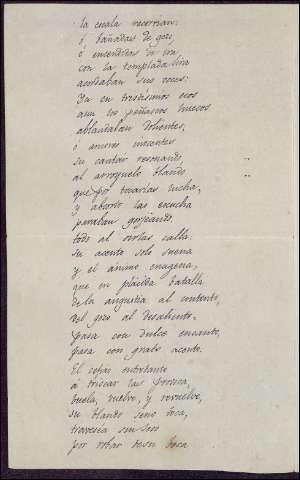 la escala recorrian:
ó bañadas de gozo
ó encendidas de ira
con la templada lira
acordaban sus voces:
Ya en tristísimos ecos
aun los peñascos huecos
ablandaban dolientes;
ó amores inocentes
su cantar resonando,
al arroyuelo blando
que por tocarlas lucha,
y absorto las escucha
paraban gorjeando,
todo al oirlas calla
su acento solo suena
y el ánimo enagena,
que en plácida batalla
de la angustia al contento,
del gozo al desaliento
pasa con dulce encanto,
pasa con grato acento.
El cefiro entretanto
á triscar las provoca,
buela, vuelve, y revuelve,
su blando seno toca,
travesea sin seso
por robar de su boca